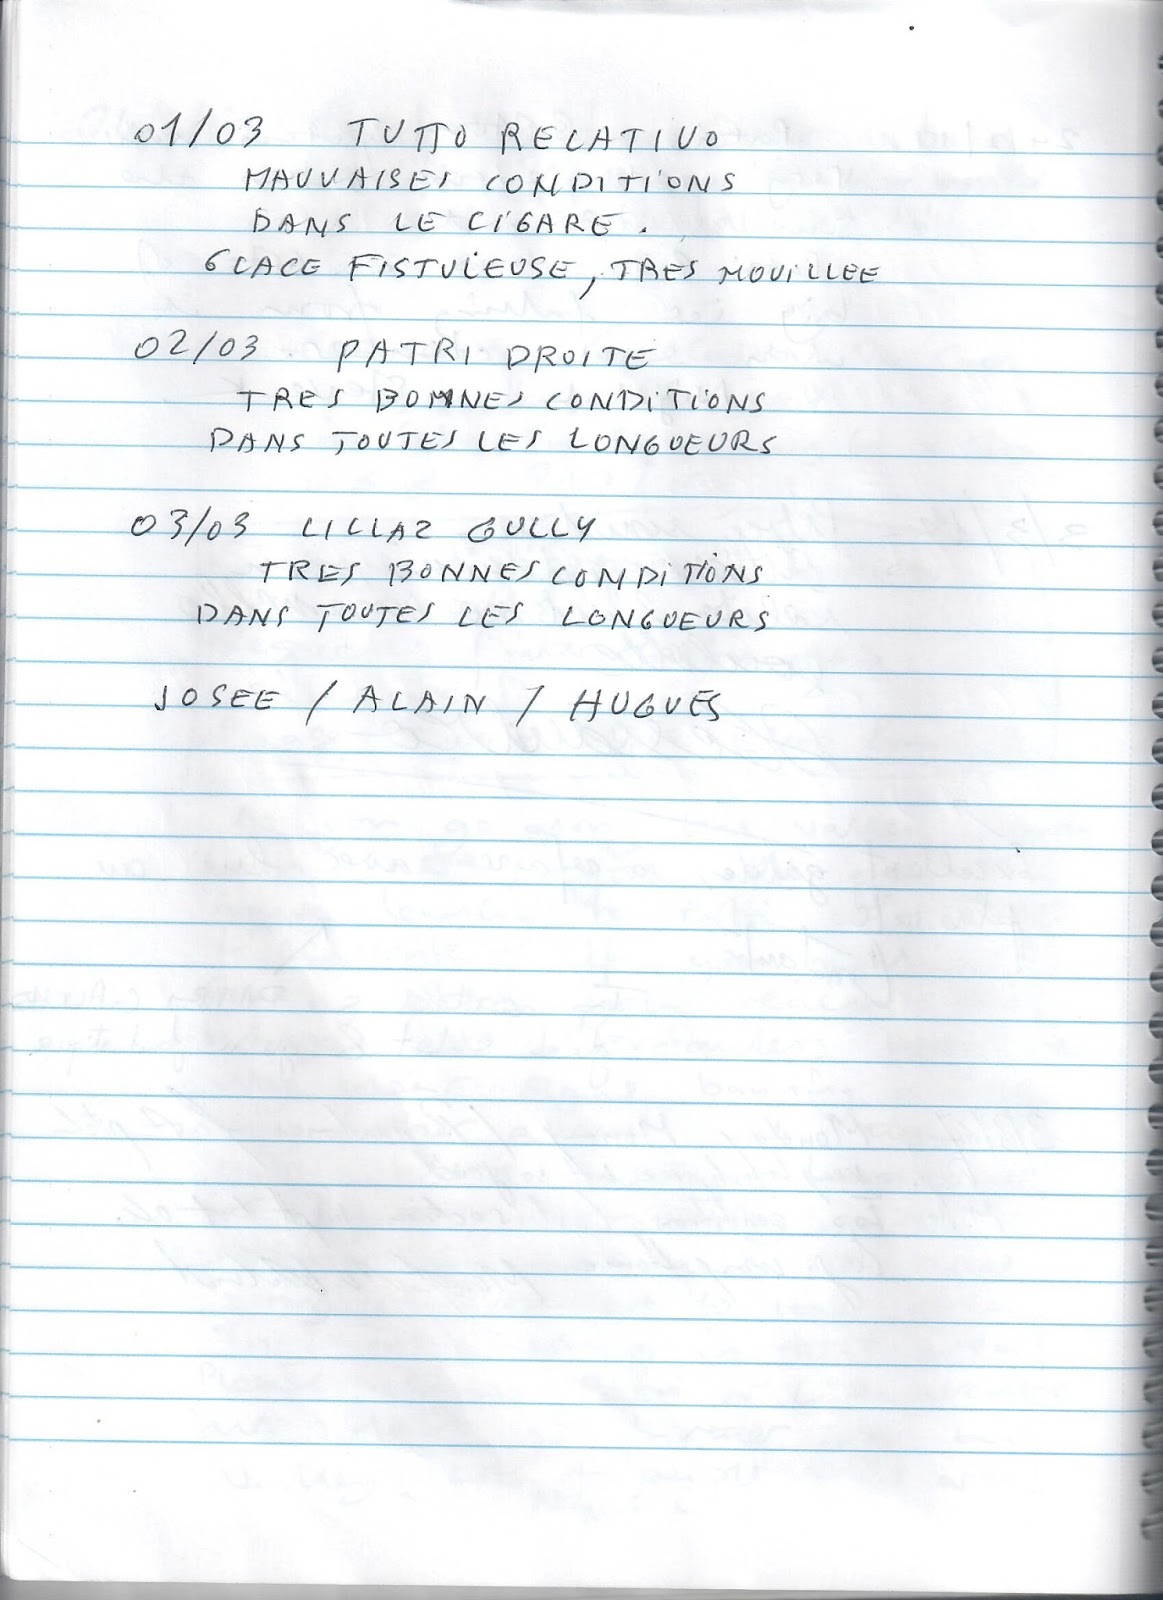 01/03 TUTTO RELATIVO
MAUVAISES CONDITIONS
DANS LE CIGARE.
GLACE FISTULEUSE, TRES MOUILLEE
02/03. PATRI DROITE
TRES BONNES CONDITIONS
DANS TOUTES LES LONGUEURS
03/03 LILLAZ GULLY
TRES BONNES CONDITIONS
DANS TOUTES LES LONGUEURS
JOSEE / ALAIN / HUGUES